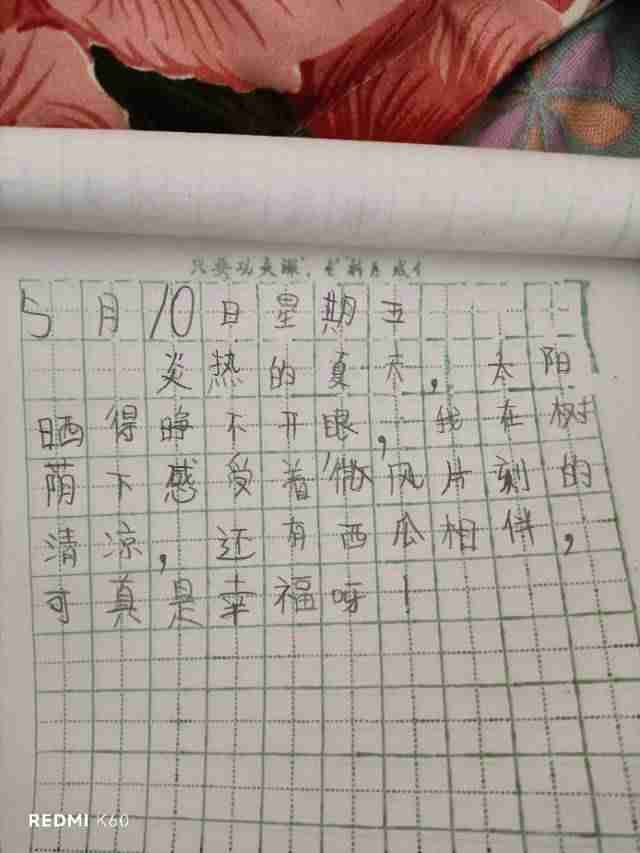 只要功夫深，
5月10日星期五
炎热的夏天，太阳
晒得睁不开眼，我在树
荫下感受着微风片刻的
清凉，还有西瓜相伴，
可真是幸福呀！
REDMI K60